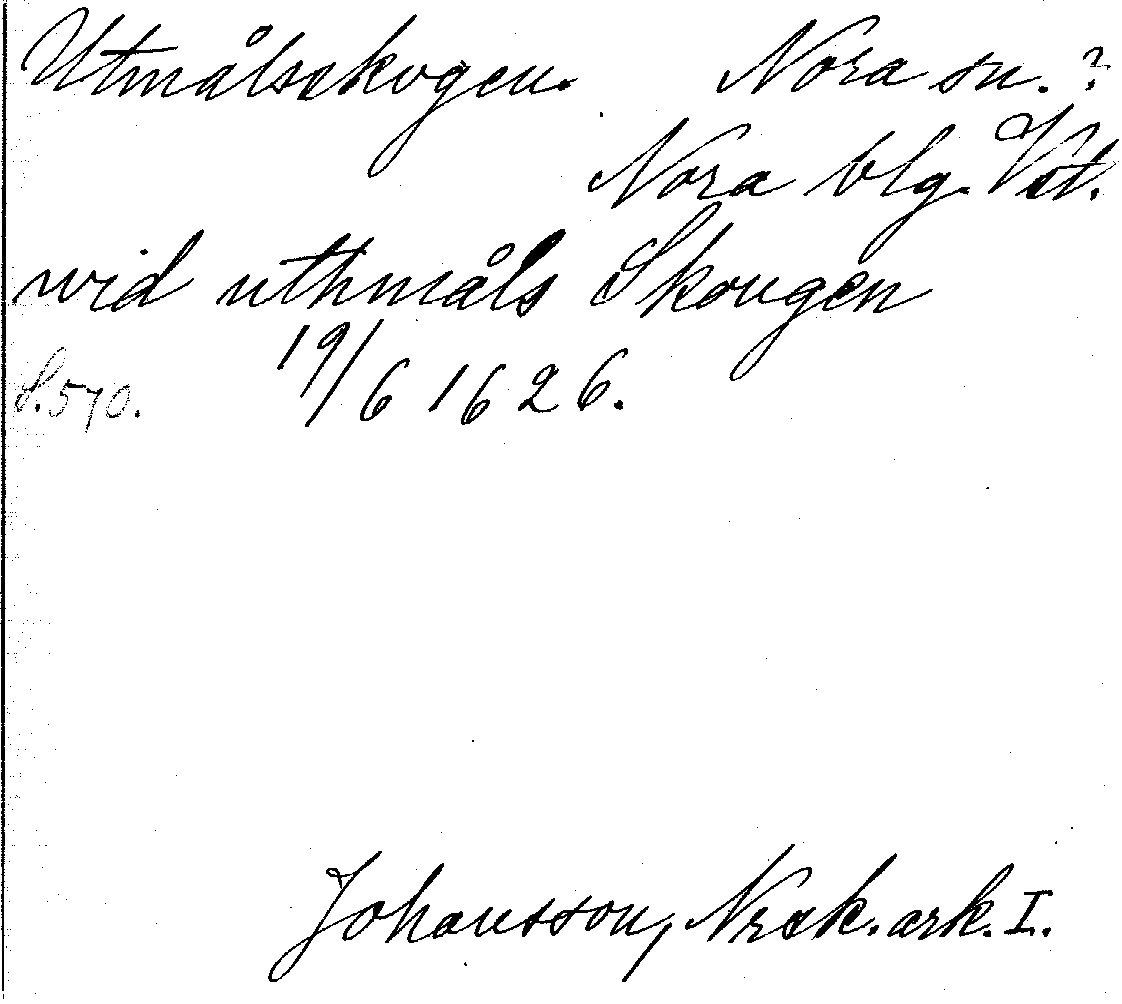 Utmålsskogen. Nora sn. ?
Nora blg. Vstl.
wid uthmåls Skougen
S. 570. 19/6 1626.
Johansson, Nrsk. ark. I.